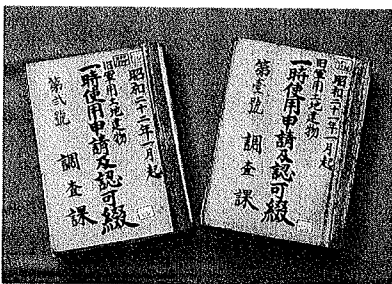 昭和二十一年一月起
旧軍用土地建物
一時使用申請及認可綴
第壱號 調査課
昭和二十二年一月起
旧軍用土地建物
一時使用申請及認可綴
第弐號 調査課